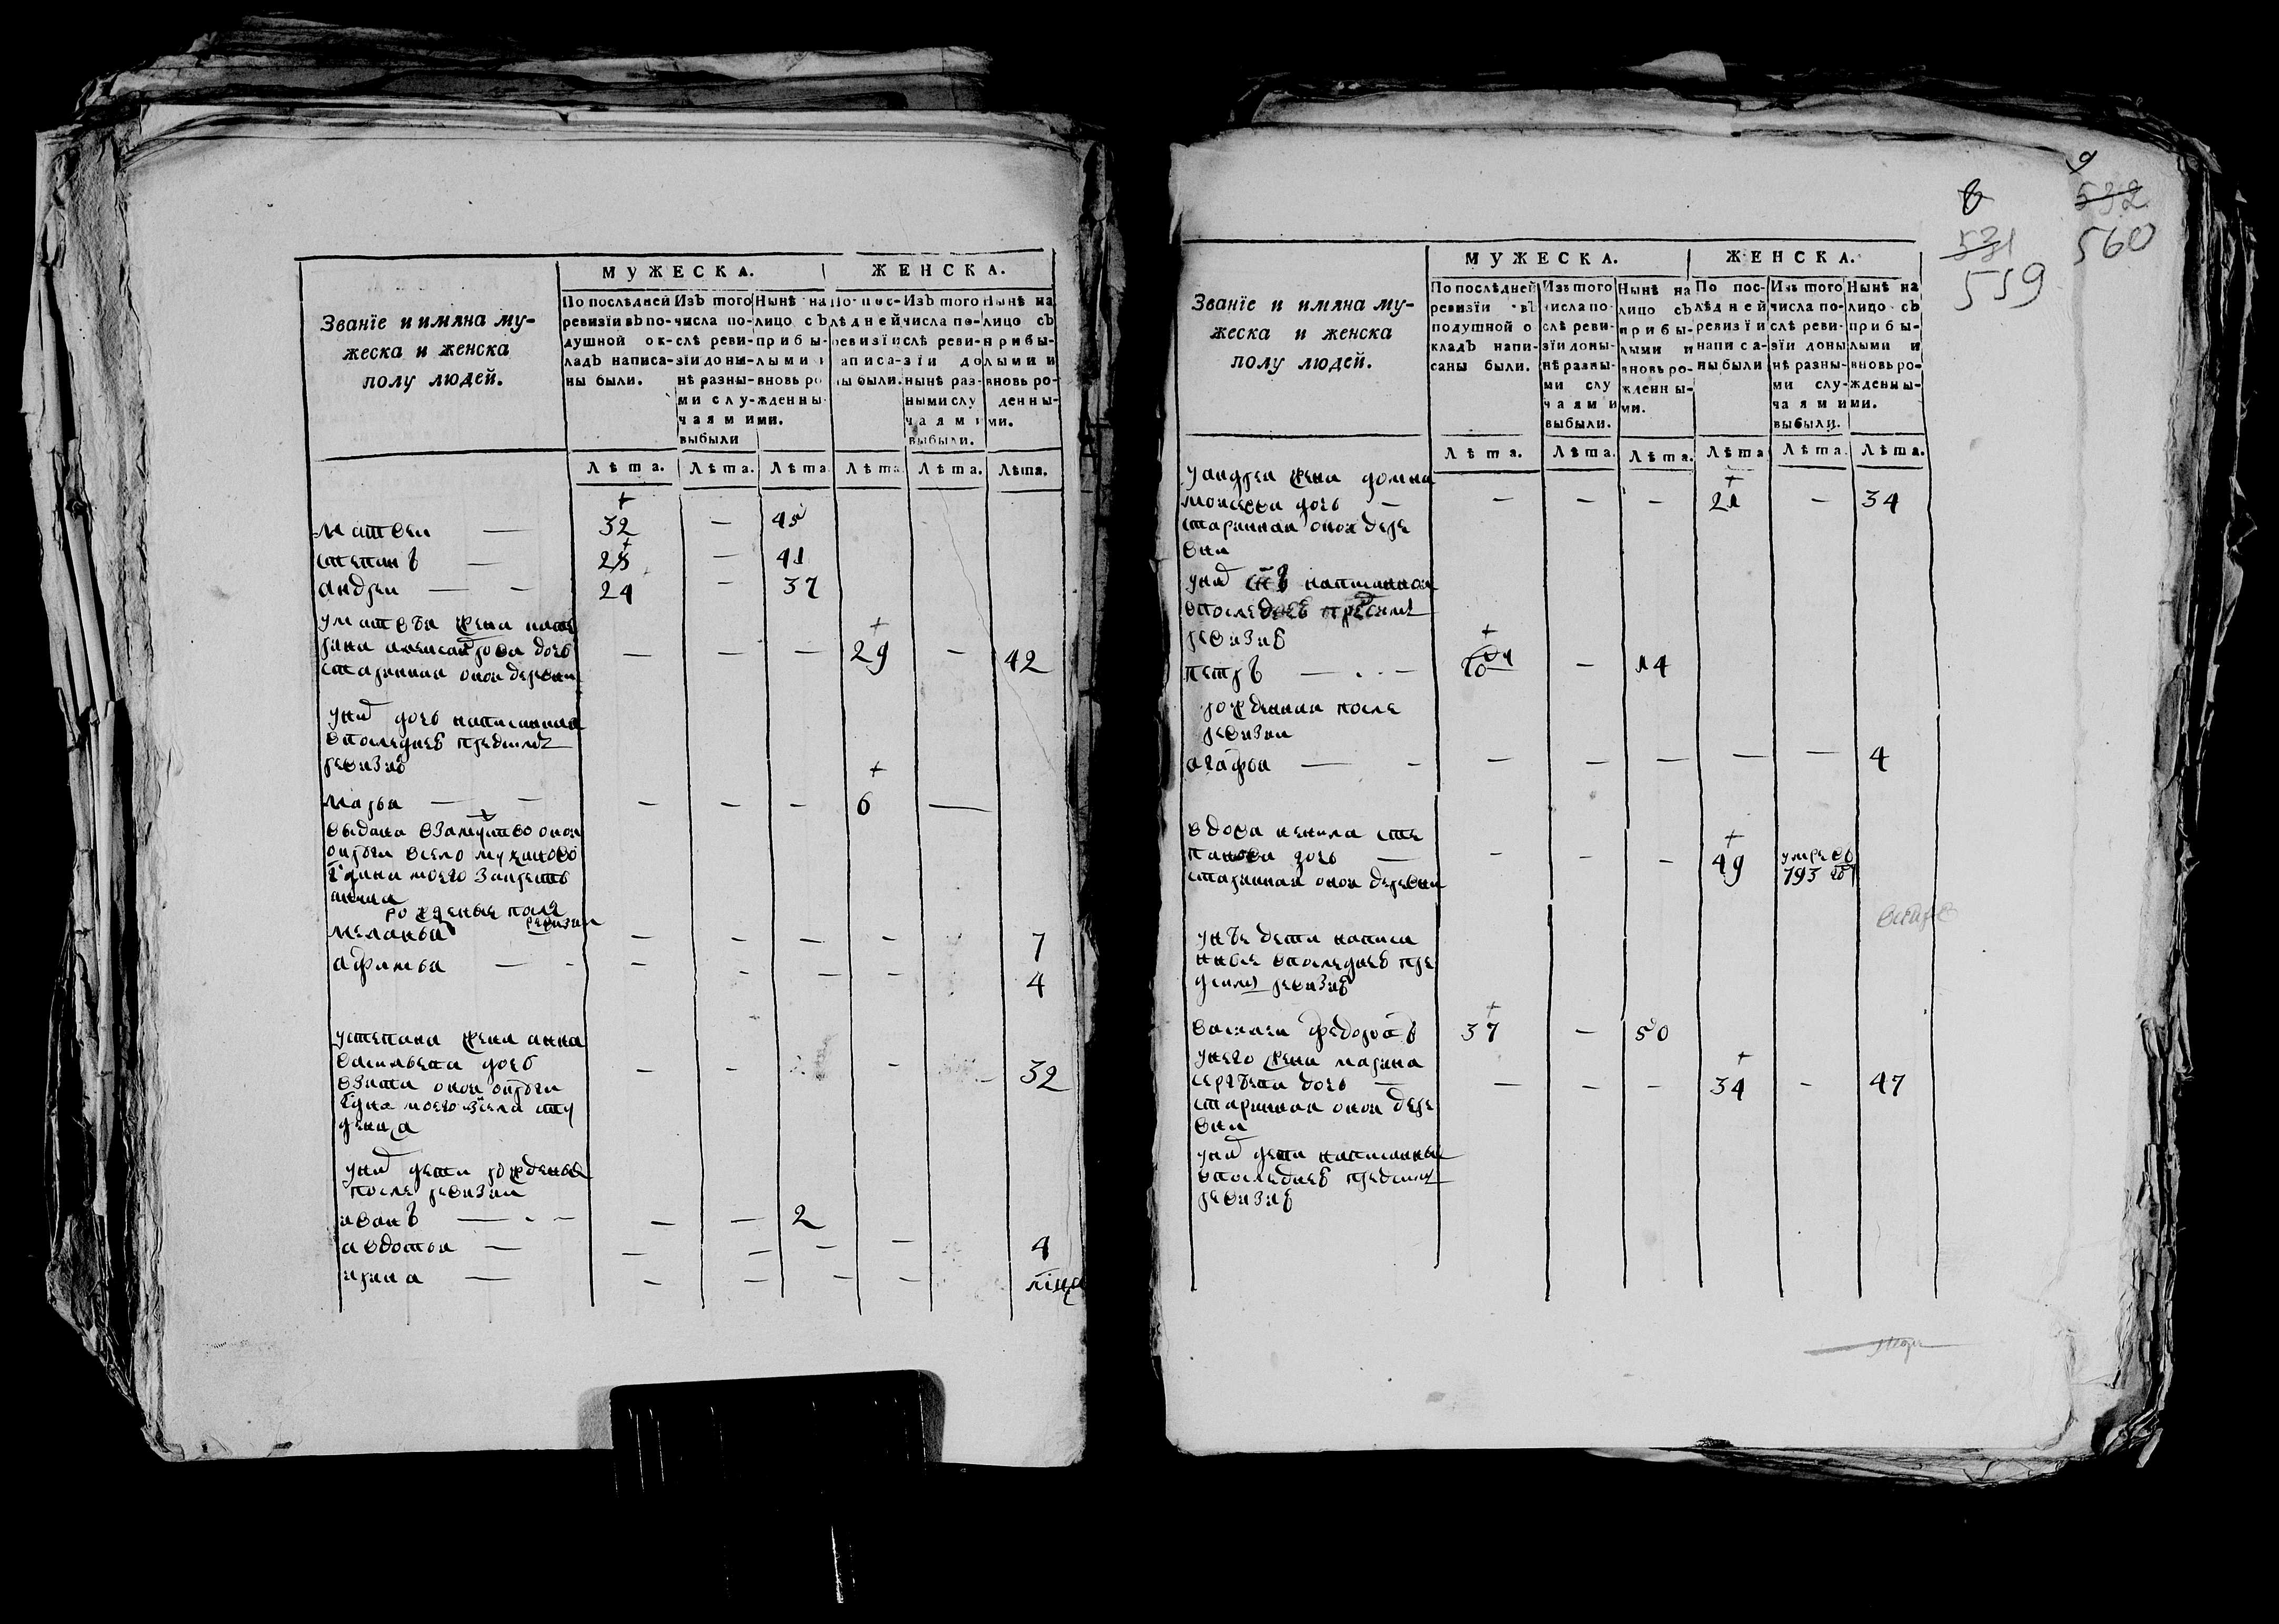 МУЖЕСКА. ЖЕНСКА.
Званїе и имяна му-
жеска и женска
полу людей.
По послѣдней ревизїи въ подушной окладъ написаны были.
Изъ того числа послѣ ревизїи донынѣ разными случаями выбыли
Нынѣ на лицо съ прибылыми и вновь рожденными.
По послѣдней ревизїи написаны были.
Изъ того числа послѣ ревизїи до нынѣ разными случаями выбыли.
Нынѣ на лицо съ прибылыми и вновь рожденными.
Лѣта. Лѣта. Лѣта. Лѣта. Лѣта. Лѣта.
матвеи — 32 — 45
степанъ — 28 — 41
андреи — — 24 — 37
уматвѣя жена кате
рина алеѯандрова дочь — — — 29 — 42
старинная онои деревни
унид дочь написанная
впоследнеѣ предшит
ревизиѣ
марья — — — — — 6 —
выдана взамуство онои
рожденые после
ревизии
меланья — — — — 7
афимья — - — - — - 4
устепана жена анна
васильева дочь — — - — 32
взята онои
унид дети рожденые
после ревизии
иванъ — - — — — 2
авдотья — — — — — 4
ирина — — — — —
6 9
531 532
559 560
МУЖЕСКА. ЖЕНСКА.
Званїе и имяна му-
жеска и женска
полу людей.
По послѣдней ревизїи въ подушной окладъ написаны были.
Изъ того числа послѣ ревизїи донынѣ разными случаями выбыли.
Нынѣ на лицо съ прибылыми и вновь рожденными.
По послѣдней ревизїи написаны были
Изъ того числа послѣ ревизїи донынѣ разными случаями выбыли.
Нынѣ на лицо съ прибылыми и вновь рожденными.
Лѣта. Лѣта. Лѣта. Лѣта Лѣта. Лѣта.
уандрея жена домна
моисеева дочь — — — — 21 — 34
старинная онои дере
вни
унид снъ написанной
впоследнеѣ
ревизиѣ
петръ — - — — 14
рожденная после
ревизии
агафья — - — — — — — 4
вдова ненила сте
панова дочь — — — — 49 умре въ
старинная онои деревни 793 году
унѣе дети написа
нные впоследнеѣ пре
дшит ревизиѣ
василеи федоровъ 37 — 50
унего жена марина
сергѣева дочь — — — — 34 - 47
старинная онои дере
вни
унид дети написанные
впоследнеѣ предшит
ревизиѣ